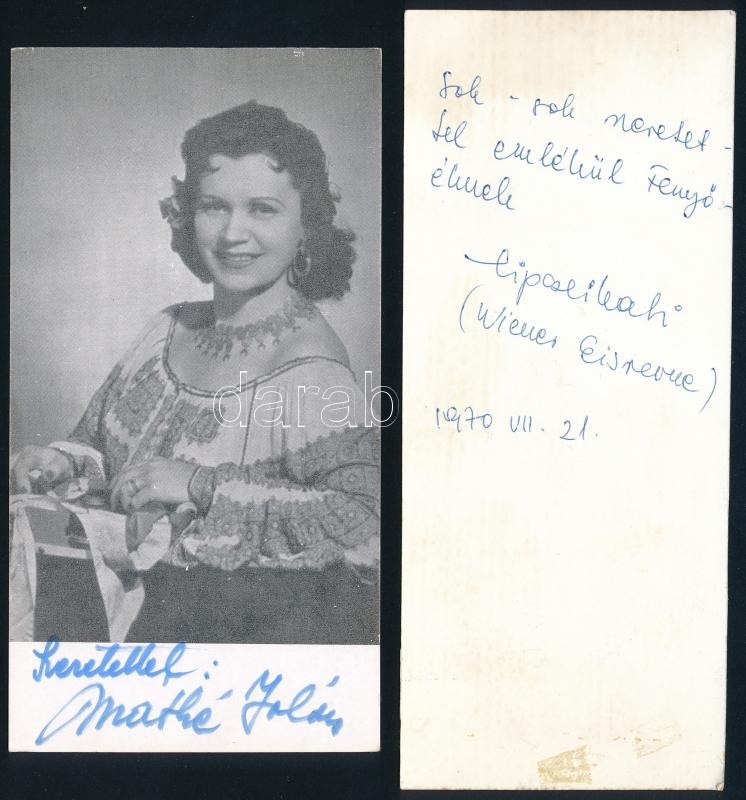 Szeretettel:
Máthé Jolán
Sok - sok szeretet-
tel emlékül Fenyő-
éknek
Lipcsei Kati
(Wiener Eisrevue)
1970 VII. 21.
darab